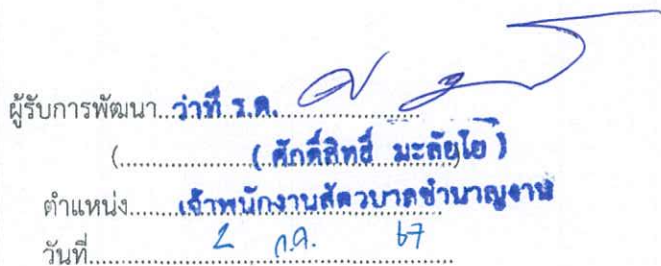 ผู้รับการพัฒนา...ว่าที่ ร.ต. ....................
(....................( ศักดิ์สิทธิ์ มะลัยโย )
ตำแหน่ง.......เจ้าพนักงานสัตวบาลชำนาญงาน
วันที่.................2 ก.ค. 67........